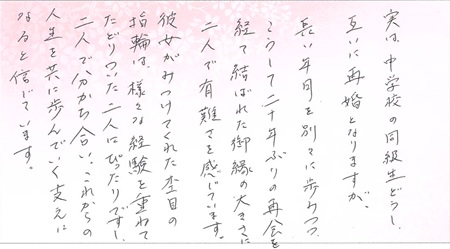 実は、中学校の同級生どうし、
互いに再婚となりますが、
長い年月を別々に歩みつつ、
こうして二十年ぶりの再会を
経て結ばれた御縁の大きさに
二人で有難さを感じています。
彼女がみつけてくれた杢目の
指輪は、様々な経験を重ねて
たどりついた二人にぴったりですし、
二人で分かち合い、これからの
人生を共に歩んでいく支えに
なると信じています。